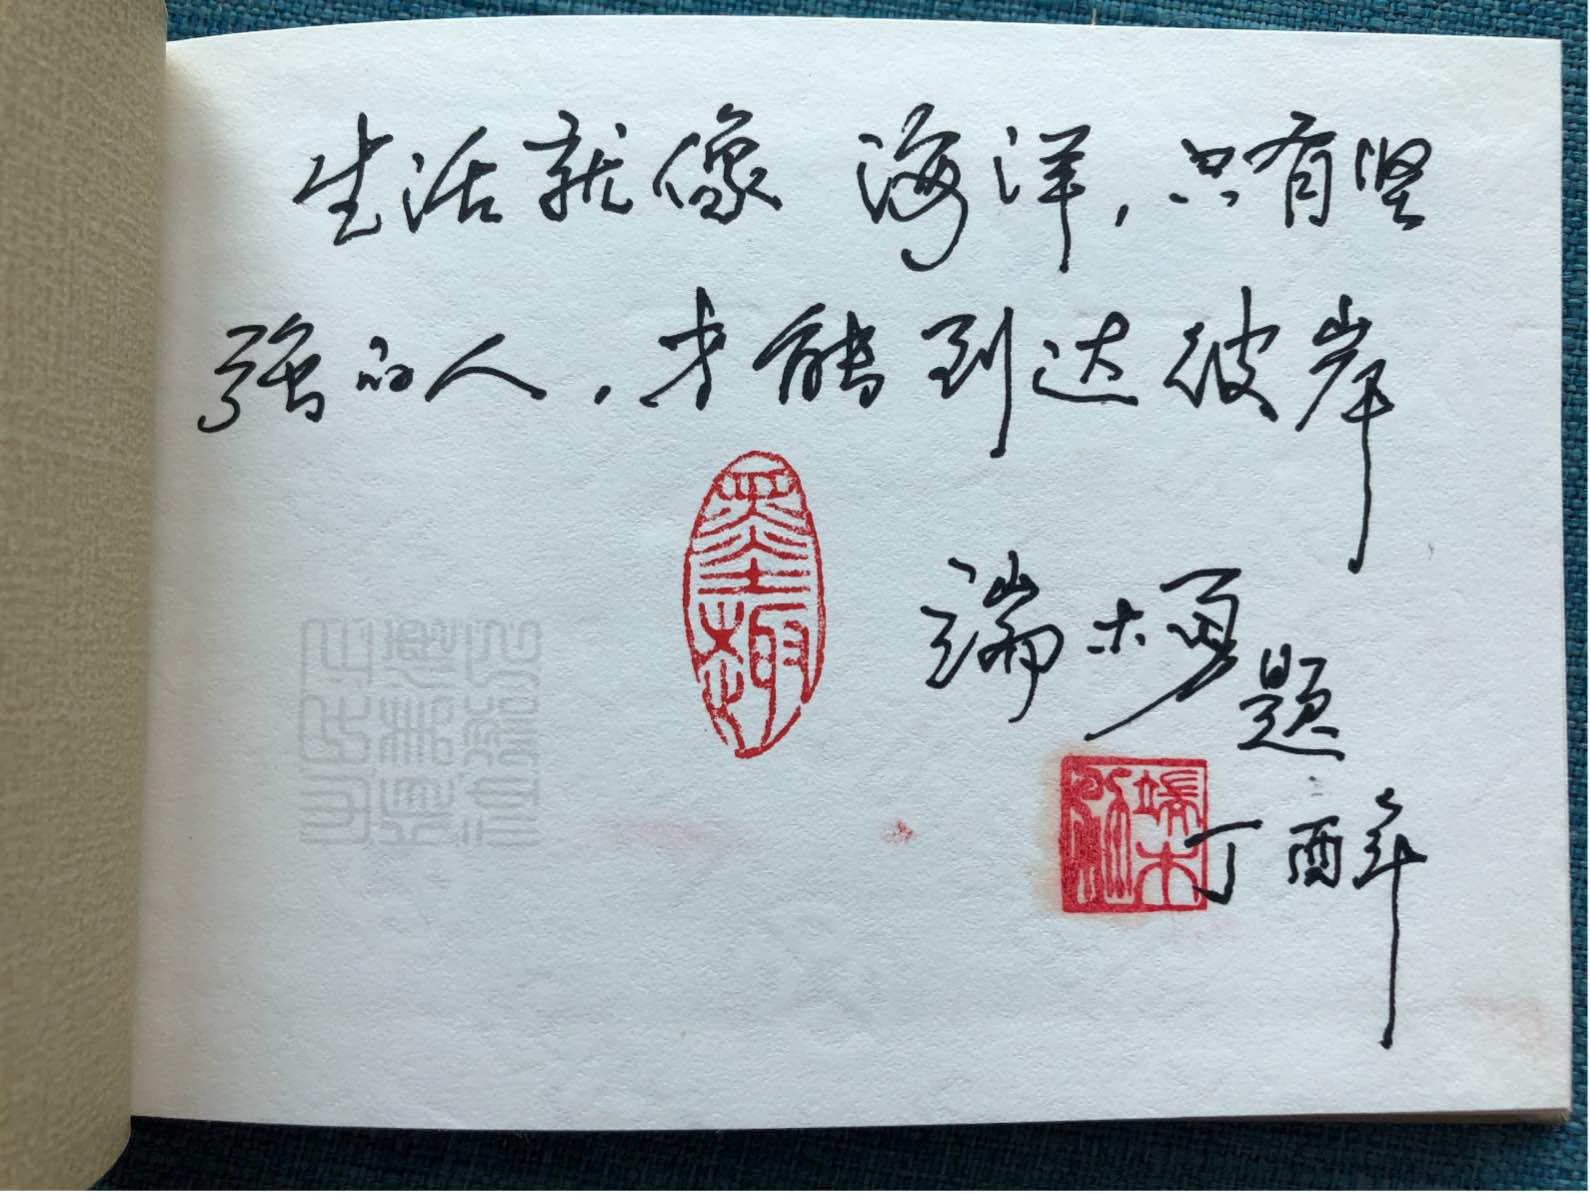 生活就像海洋，只有坚
强的人，才能到达彼岸
墨趣
端木
题
端木
丁酉年